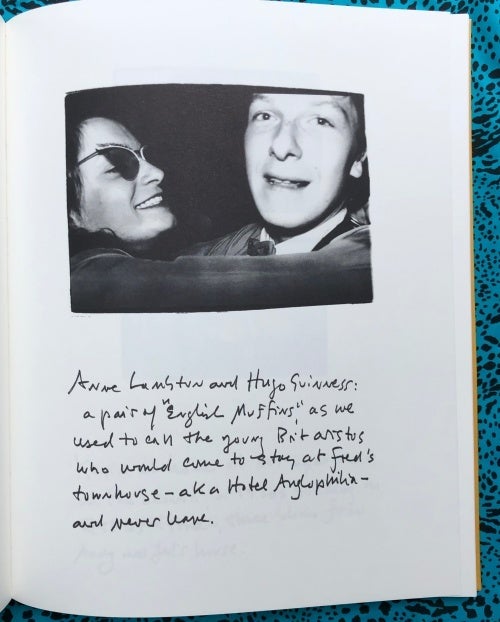 Anne Lambton and Hugo Guinness:
a pair of "English Muffins" as we
used to call the young Brit aristos
who would come to stay at Fred's
townhouse - aka Hotel Anglophilia -
and never leave.